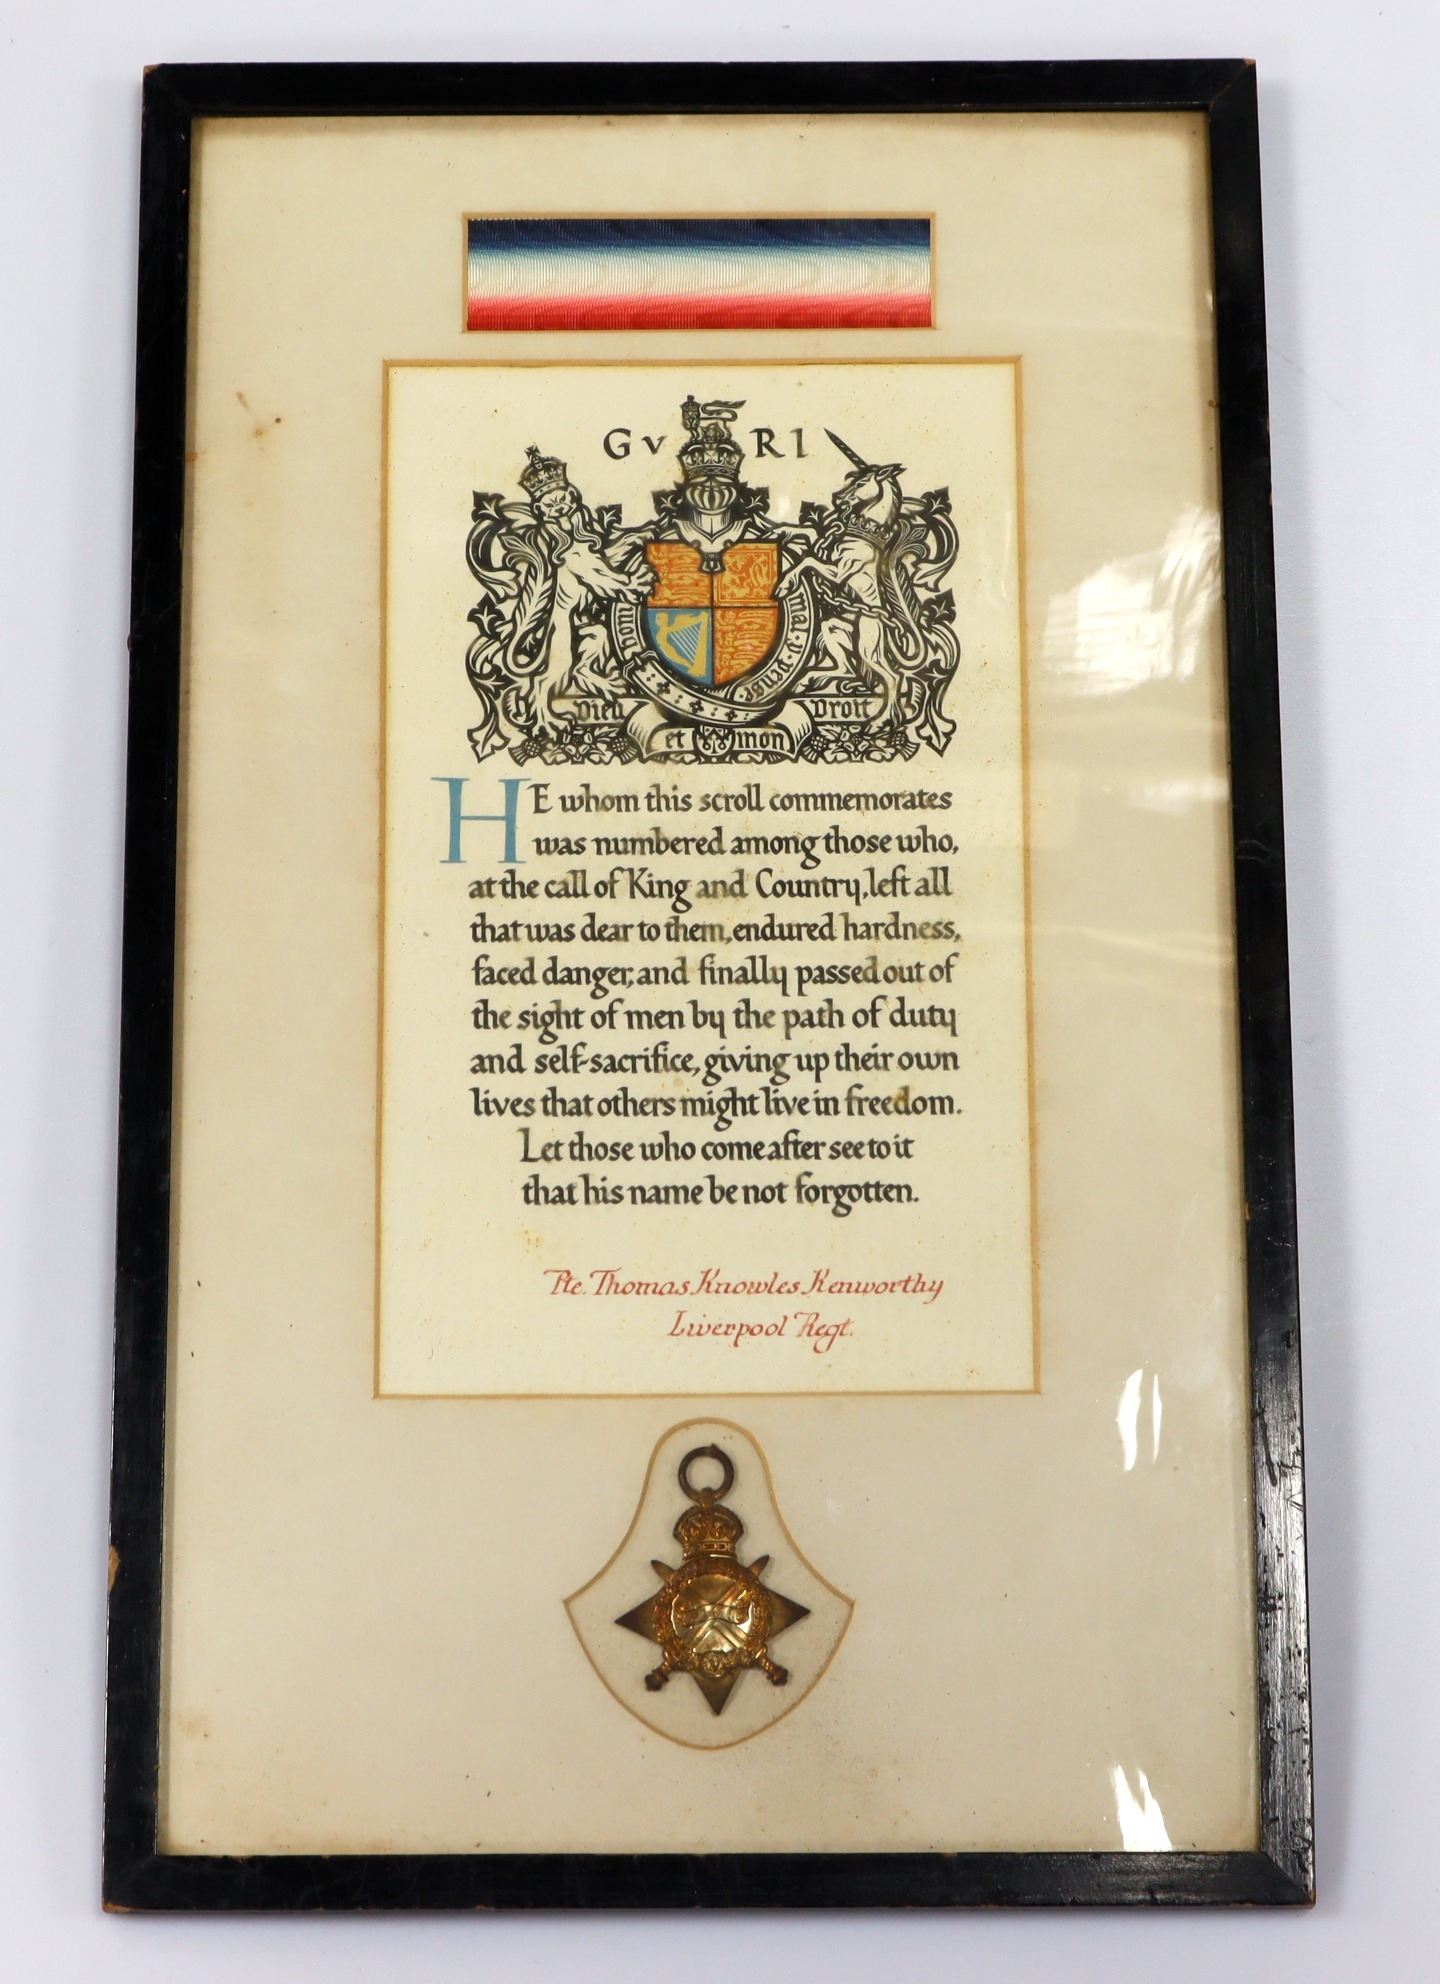 G V R I
Honi mal y pense
Dieu et mon Droit
HE whom this scroll commemorates
was numbered among those who,
at the call of King and Country, left all
that was dear to them, endured hardness,
faced danger, and finally passed out of
the sight of men by the path of duty
and self-sacrifice, giving up their own
lives that others might live in freedom.
Let those who come after see to it
that his name be not forgotten.
Pte. Thomas Knowles Kenworthy
Liverpool Regt.